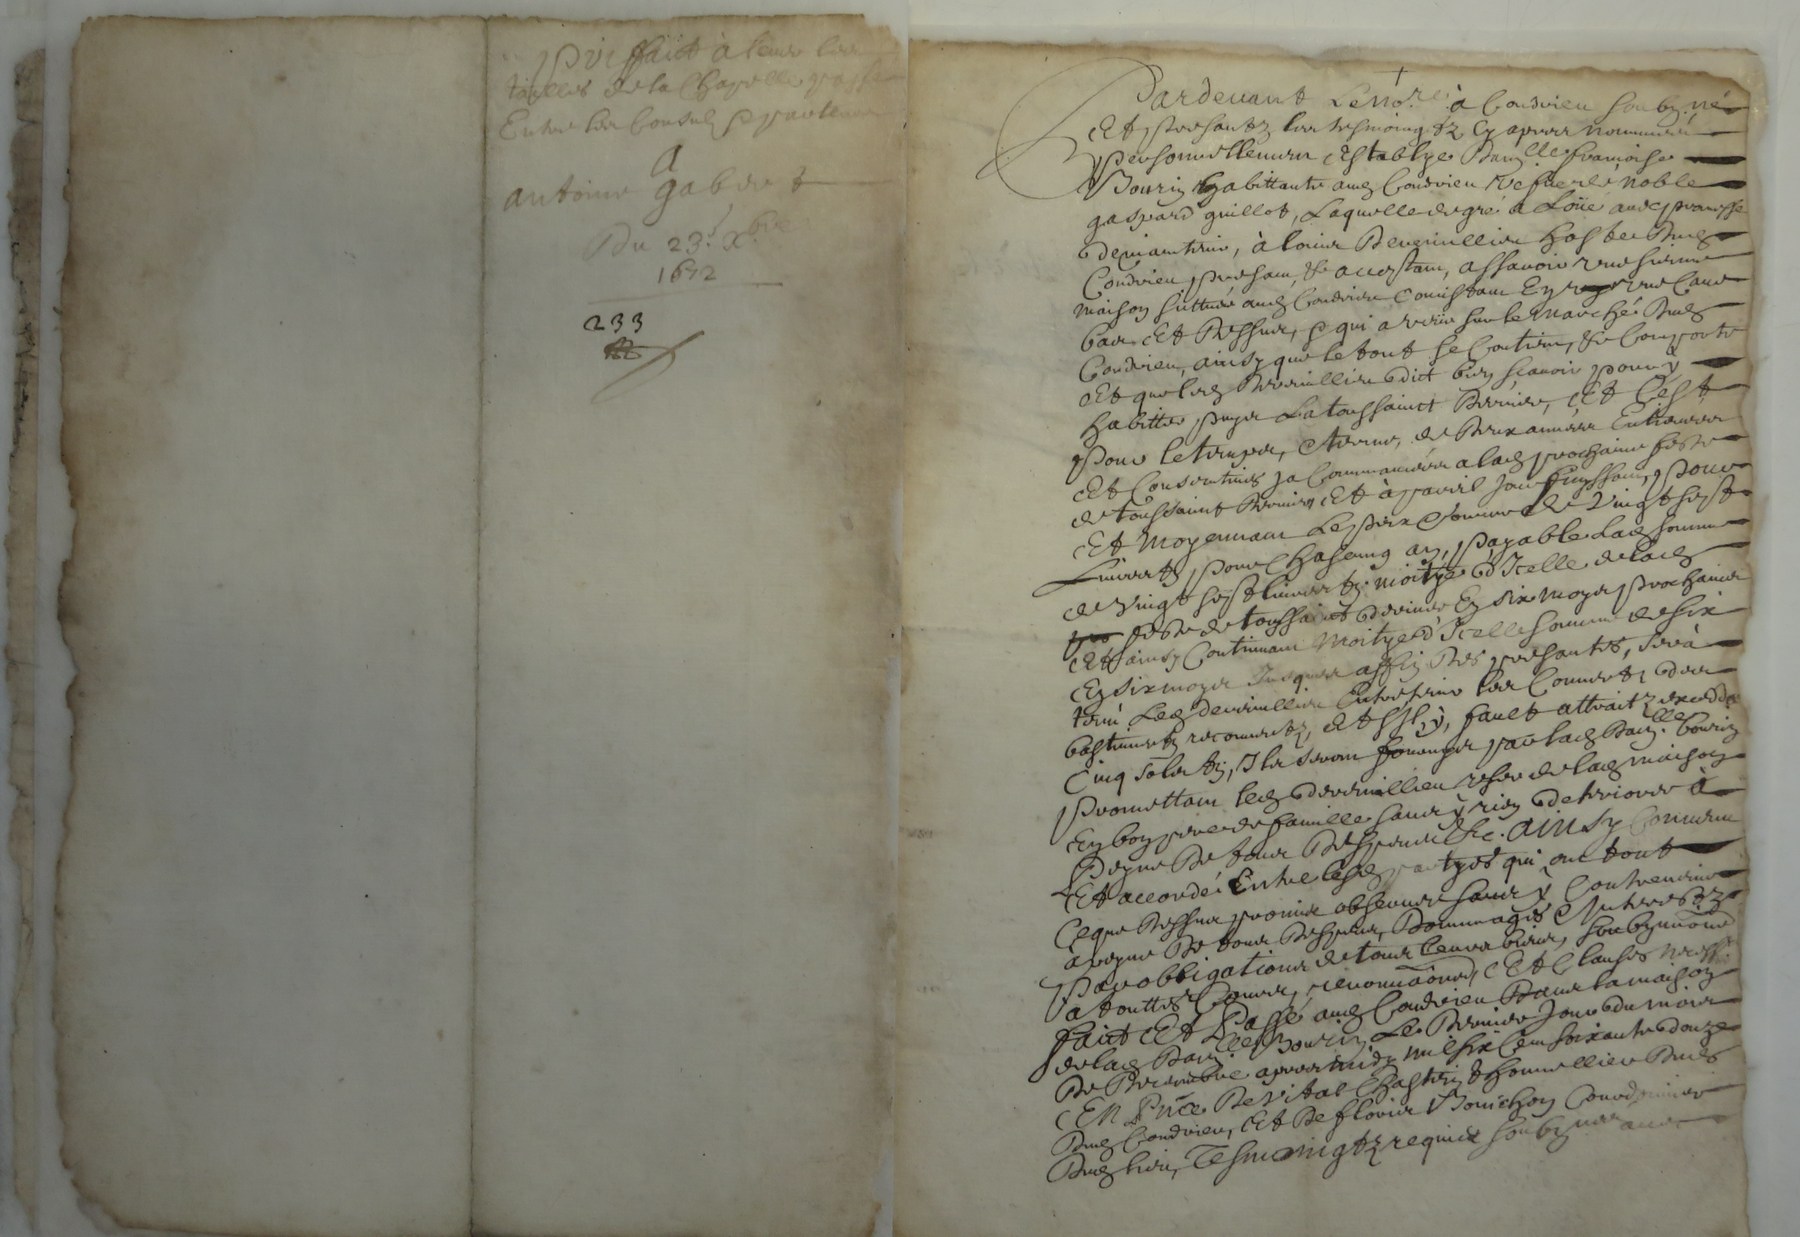 Prix faict à lever les
tailles de la Chapelle
Entre les Consulz
A
antoine gabert
Du 23e xbre
1672
233
Pardevant Le nore à Condrieu soubzné
Et presantz les tesmoingtz cy apres nommés
personnellement establye Damlle francoise
Bourin habittante aud Condrieu vefue de noble
gaspard guillot, Laquelle de gré a Loüe avec promesse
de maintenir, à Deverinllieu hoste dud
Condrieu presant, & acceptant, assavoir une sienne
maison sittuée aud Condrieu Consistant En une Cave
bas Et dessus, qui a veüe sur le marché dud
Condrieu, ainsy que le tout se Contient, & Comporte
Et que led Deverinllieu dict bien scavoir pour y
habitter puys La toussainct derniere, Et C'est
pour le temps, & terme, de deux années Entieres
Et Consecutives ja Commancées a lad prochaine feste
de toussainct dernier Et à pareil jour finissant, pour
Et moyennant Le prix & somme de Vingt sept
Livres tz pour chascung an, payable lad somme
de Vingt sept livres tz moitye d'Icelle de lad
feste de toussainct derniere En six moys prochains
Et ainsy Continuant moitye d'Icelle somme de six
En six moys Jusques affin des presantes, sera
tenu Led Deverinllieu Entretenir les Couvertz des
bastimentz recouvertz, Et s'il y fault attraitz excedde
Cinq solz tz, Ils seront par lad Damlle bourin
promettant led Deverinllieu user de lad maison
En bon pere de famille sans y rien deteriorer à
peyne de tous despens &c. ainsy Convenu
Et accordé Entre lesd partyes qui ont tout
Ce que dessus promis observer sans y Contrevenir
à peyne de tous despens, dommages & Interestz
par obligations de tous leurs biens, soubzmions
à touttes Cours, renonciaons, Et Clauses necessres
faict Et Passé aud Condrieu dans la maison
de lad Damlle Bourin Le dernier jour du mois
de Decembre apres midy mil six cent soixante douze
En Pnce de Vital Chastin &honnellieu dud
Dud Condrieu, Et de floris Bonichon Cordonnier
Dud lieu, Tesmoingtz requis soubznés avec